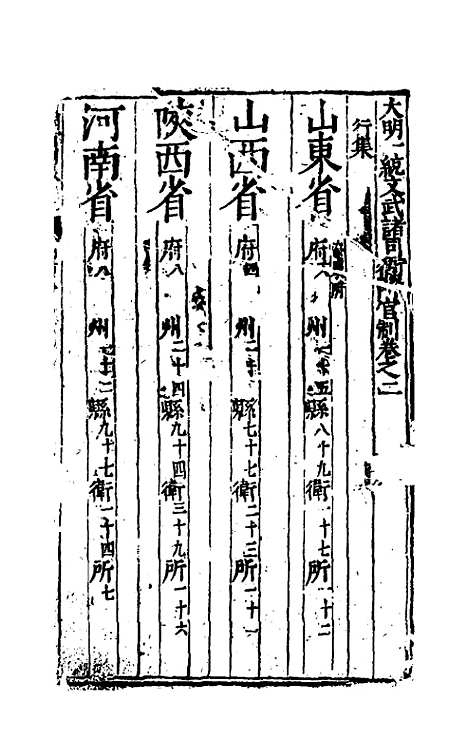 大明一統文武諸司衙門官制卷之二
行集
山東省 府六 州 十五 縣八十九 衛一十七 所一十二
山西省 府四 州二十 縣七十七 衛二十三 所一十一
陝西省 府八 州二十四 縣九十四 衛三十九 所一十六
河南省 府八 州 十二 縣九十七 衛一十四 所七